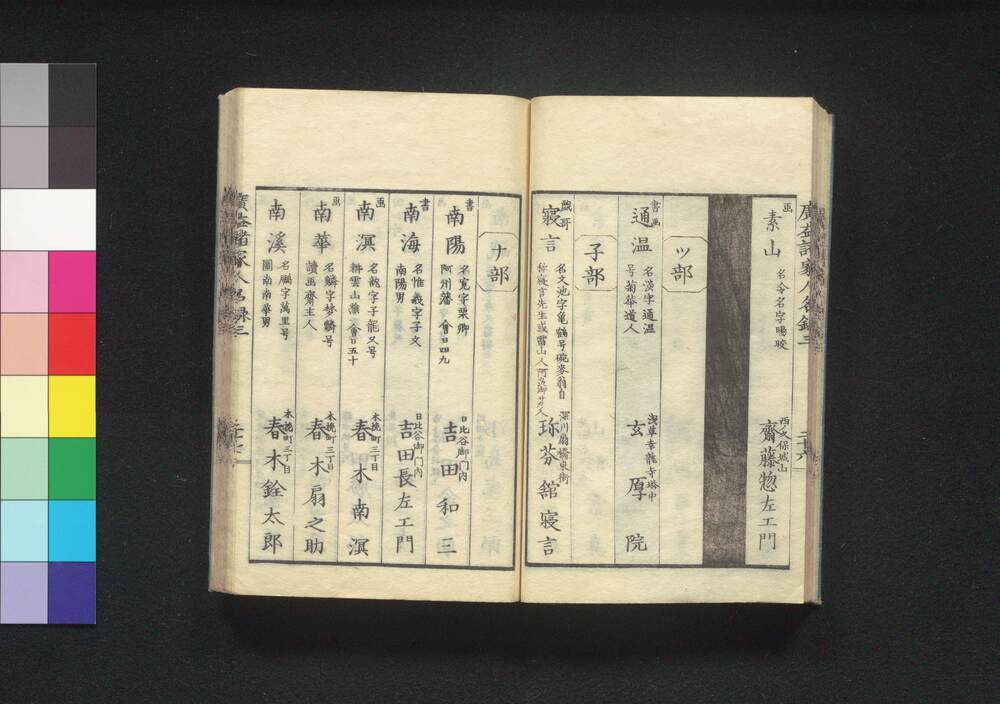 廣益諸家人名録三
画
素山
名令名字暘
西久保城山
齋藤惣左エ門
ツ部
書画
通温
名淡字通温
号菊華道人
浅草幸龍寺塔中
玄厚院
子部
戯哥
寝言
名文池字亀鶴号碗麥翁自
称寝言先生或
深川扇橋東街
珎芬舘寝言
ナ部
書
南陽
名寛字栗卿
阿州藩 會日四九
日比谷御門内
吉田和三
書
南海
名惟義字子文
南陽男
日比谷御門内
吉田長左エ門
画
南溟
名龍字子龍又号
耕雲山漁 會日五十
木挽町三丁目
春木南溟
画
南華
名鱗字梦鱗号
讀画齋主人
木挽町三丁目
春木扇之助
南溪
名鵬字萬里号
圖南南華男
木挽町三丁目
春木銓太郎
廣益諸家人名録三